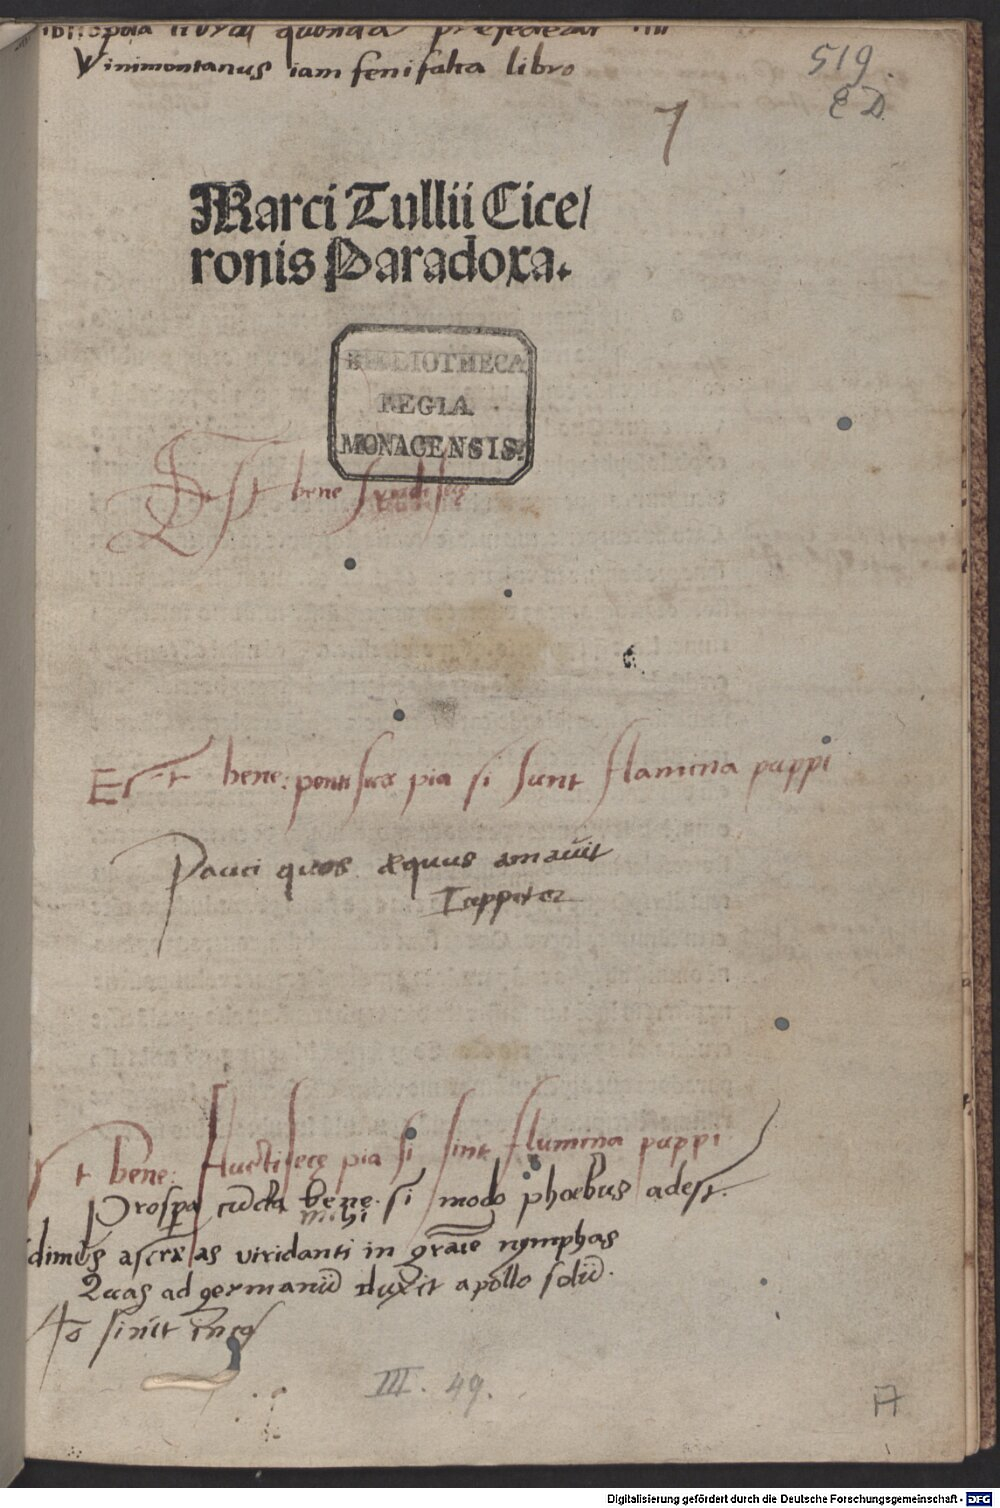 quonda
Vinimontanus iam senifalca libro
519.
E D.
7
Marci Tullii Cice/
ronis Paradoxa.
BIBLIOTHECA
REGIA
MONACENSIS.
Est bene
Est bene: pia si sunt flamina puppi
Pauci quos æquus amavit
Iuppiter
st bene: pia si sint flumina puppi
Prospera cuncta bene si modo phœbus adest.
mihi
viridanti in nymphas
Quas ad germanū duxit apollo solū.
III. 49.
A
Digitalisierung gefördert durch die Deutsche Forschungsgemeinschaft - DFG